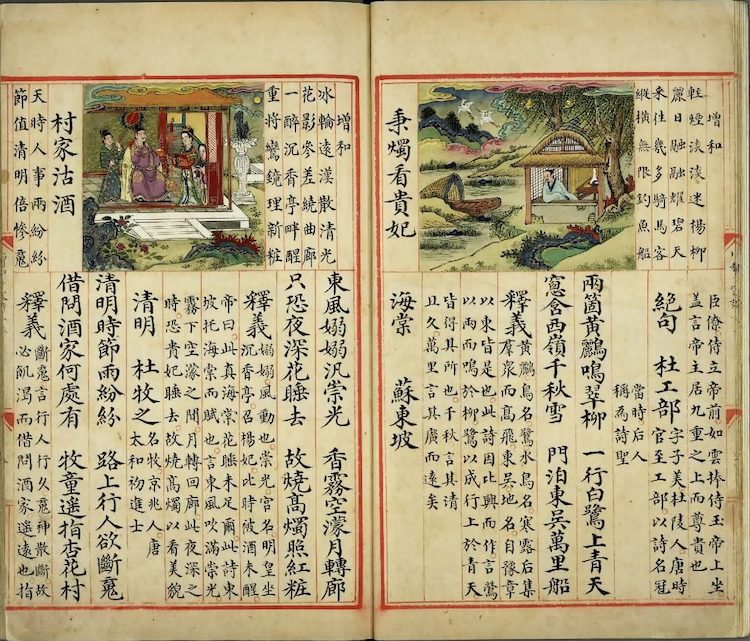 增和
輕煙淡淡迷楊柳
麗日融融耀碧天
來往幾多騎馬客
縱橫無限釣魚船
秉燭看貴妃
臣僚侍立帝前如雲捧侍玉帝上坐
蓋言帝主居九重之上而尊貴也
絕句 杜工部 字子美杜陵人唐時
官至工部以詩名冠
當時后人
稱為詩聖
兩箇黃鸝鳴翠柳 一行白鷺上青天
窻含西嶺千秋雪 門泊東吳萬里船
釋義 黃鸝鳥名鷺水鳥名寒露后集
群泉而高飛東吳地名自豫章
以東皆是也此詩因比興而作言鶯
以兩而鳴於柳鷺以成行上於青天
皆得其所也千秋言其清
且久萬里言其廣而遠矣
海棠 蘇東坡
增和
冰輪遠漢散清光
花影參差繞曲廊
一醉沉香亭畔醒
重將鸞鏡理新粧
村家沽酒
天時人事兩紛紛
節值清明倍慘䰟
東風嫋嫋汎崇光 香霧空濛月轉廊
只恐夜深花睡去 故燒高燭照紅粧
釋義 嫋嫋風動也崇光宮名明皇坐
沉香亭召楊妃此時彼酒未醒
帝曰此真海棠花睡未足爾此詩東
坡托海棠而賦也言東風吹滿崇光
霧下空濛之間月轉回廊此夜深之
時恐貴妃睡去故燒高燭以看美貌
清明 杜牧之 名牧京兆人唐
太和初進士
清明時節雨紛紛 路上行人欲斷䰟
借問酒家何處有 牧童遥指杏花村
釋義 斷䰟言行人行久䰟神散斷故
必飢渴而借問酒家遥遠也指